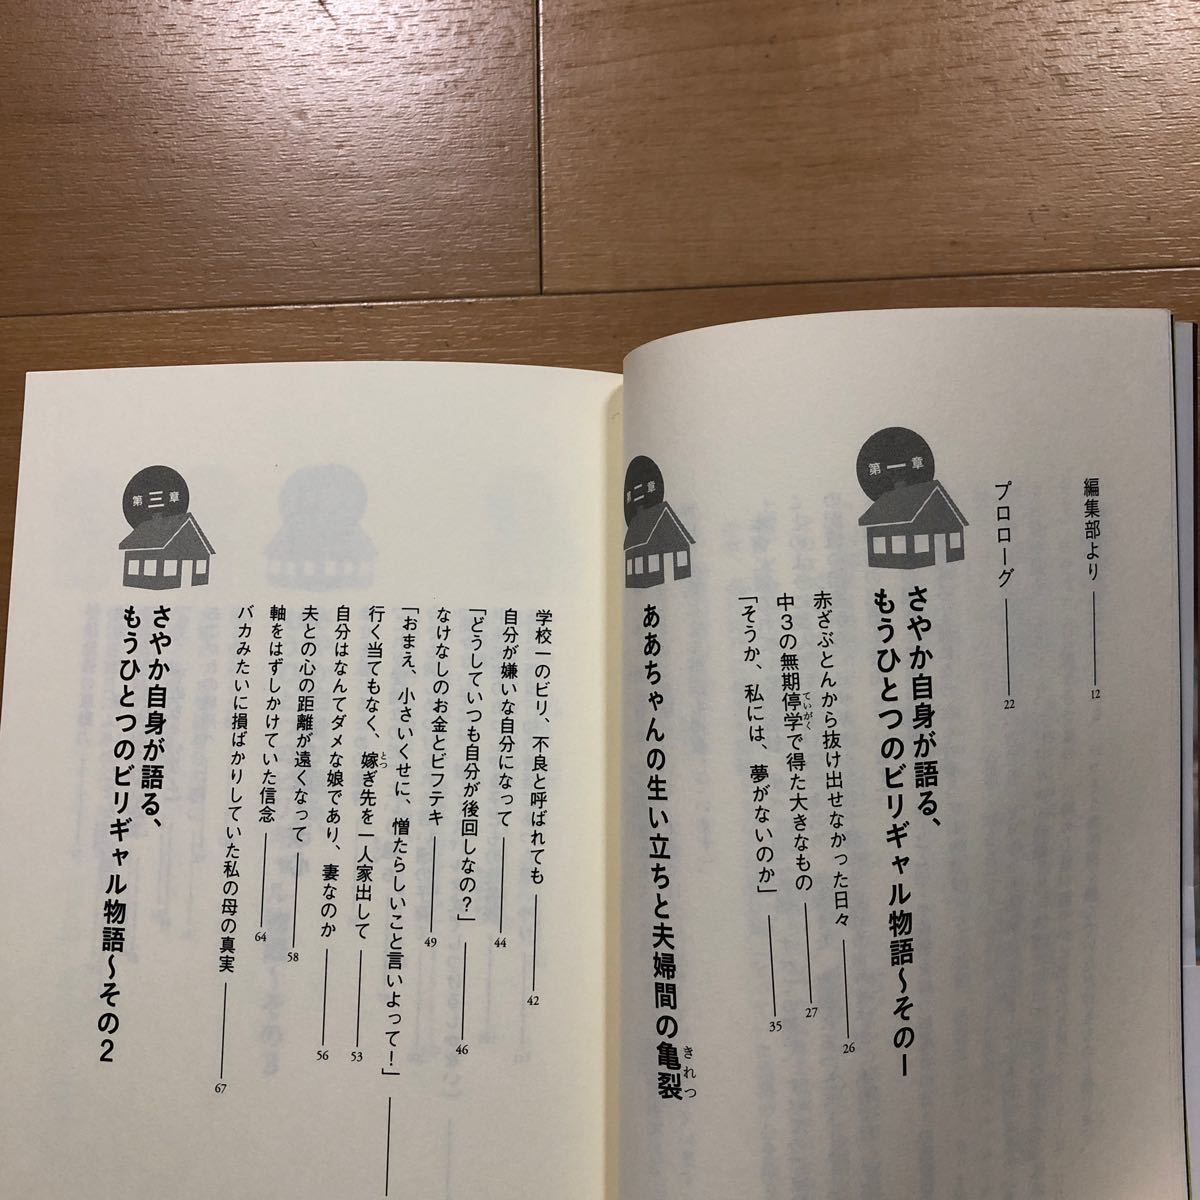 編集部より 12
プロローグ 22
第一章
さやか自身が語る、
もうひとつのビリギャル物語〜その1
赤ざぶとんから抜け出せなかった日々 26
中3の無期停学で得た大きなもの 27
ていがく
「そうか、私には、夢がないのか」 35
第二章
ああちゃんの生い立ちと夫婦間の亀裂
きれつ
学校一のビリ、不良と呼ばれても 42
自分が嫌いな自分になって 44
「どうしていつも自分が後回しなの?」 46
なけなしのお金とビフテキ 49
「おまえ、小さいくせに、憎たらしいこと言いよって!」
行く当てもなく、嫁ぎ先を一人家出して 53
とつ
自分はなんてダメな娘であり、妻なのか 56
夫との心の距離が遠くなって 58
軸をはずしかけていた信念 64
バカみたいに損ばかりしていた私の母の真実 67
第三章
さやか自身が語る、
もうひとつのビリギャル物語〜その2